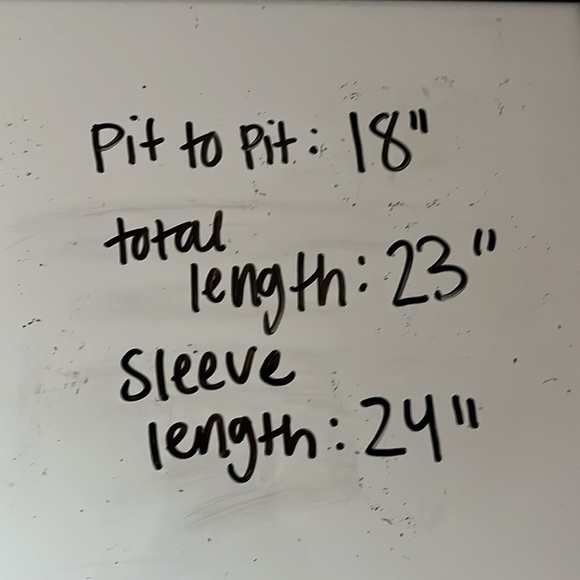 Pit to Pit: 18"
total
length: 23"
Sleeve
length: 24"